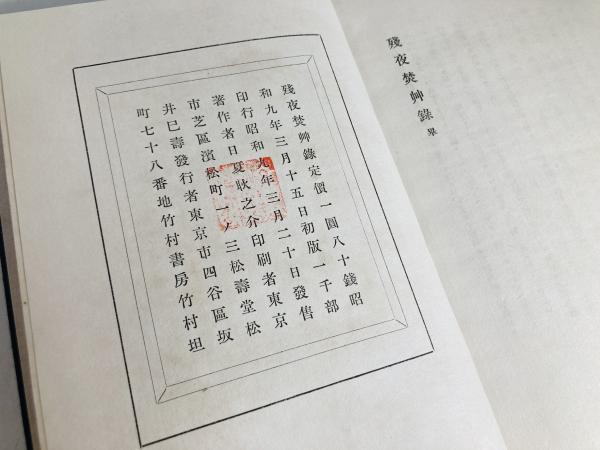 殘夜焚艸錄 畢
殘夜焚艸錄定價一圓八十錢昭
和九年三月十五日初版一千部
印行昭和九年三月二十日發售
著作者日夏耿之介印刷者東京
市芝區濱松町一ノ三松壽堂松
井巳壽發行者東京市四谷區坂
町七十八番地竹村書房竹村坦